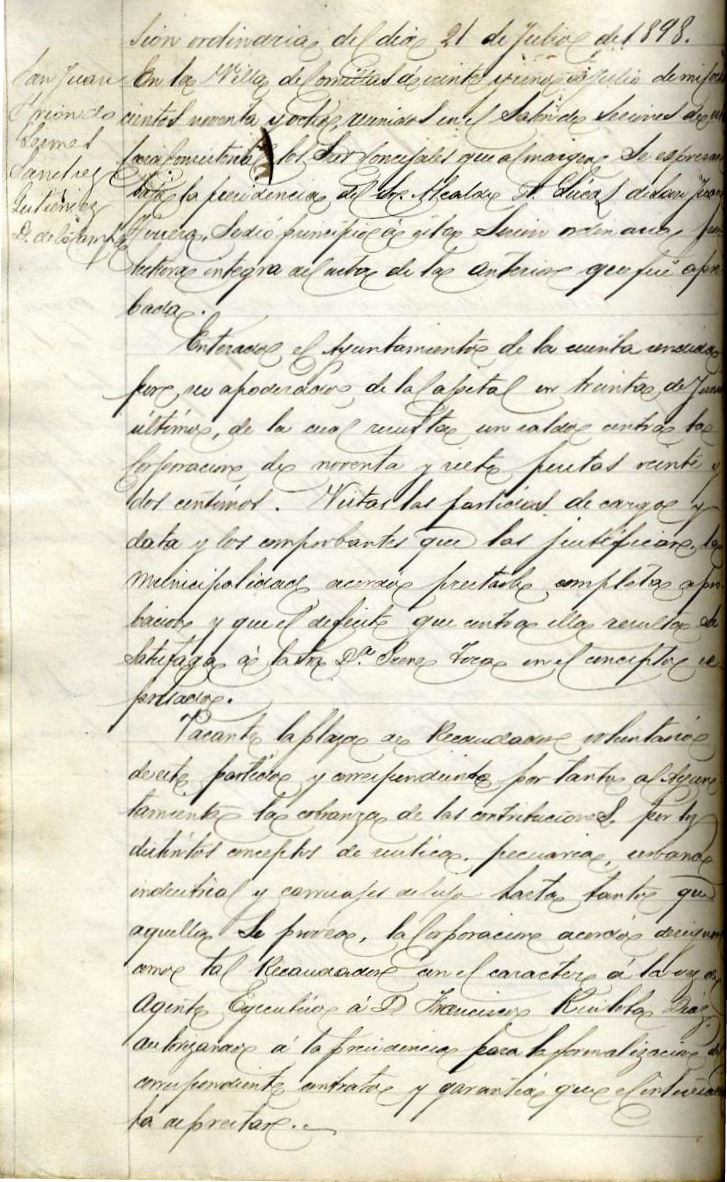 sion ordinaria del dia 21 de Julio de 1898.
San Juan
Trióndo
Gutierrez
En la Villa de Comillas á veinte y uno de Julio de mil ocho
cientos noventa y ocho, reunidos en el Salon de Sesiones de
Casa Consistorial los Sres Concejales que al margen se expresan
bajo la presidencia del Sr. Alcalde D. Lucas de San Juan
Se dió principio á esta Sesion ordinaria por
lectura integra del acta de la anterior que fué apro
bada.
Enterado el Ayuntamiento de la cuenta rendida
por su apoderado de la Capital en treinta de Junio
último, de la cual resulta un saldo contra la
Corporacion de noventa y siete pesetas veinte y
dos centimos. Vistas las partidas de cargo y
data y los comprobantes que las justifican, la
municipalidad acordó prestarle completa apro
bacion y que el deficit que contra ella resulta se
satisfaga á la Sra Dª Irene Toca en el concepto ex
presado.
Vacante la plaza de Recaudador voluntario
de este partido y correspondiente por tanto al Ayun
tamiento la cobranza de las contribuciones por los
distintos conceptos de rustica, pecuaria, urbana
industrial y carruajes de lujo hasta tanto que
aquella se provea, la Corporacion acordó designar
como tal Recaudador con el caracter á la vez de
Agente Ejecutivo á D Francisco Ruiloba Diaz,
autorizando á la presidencia para la formalizacion del
correspondiente contrato y garantia que el interesado
ha de prestar.